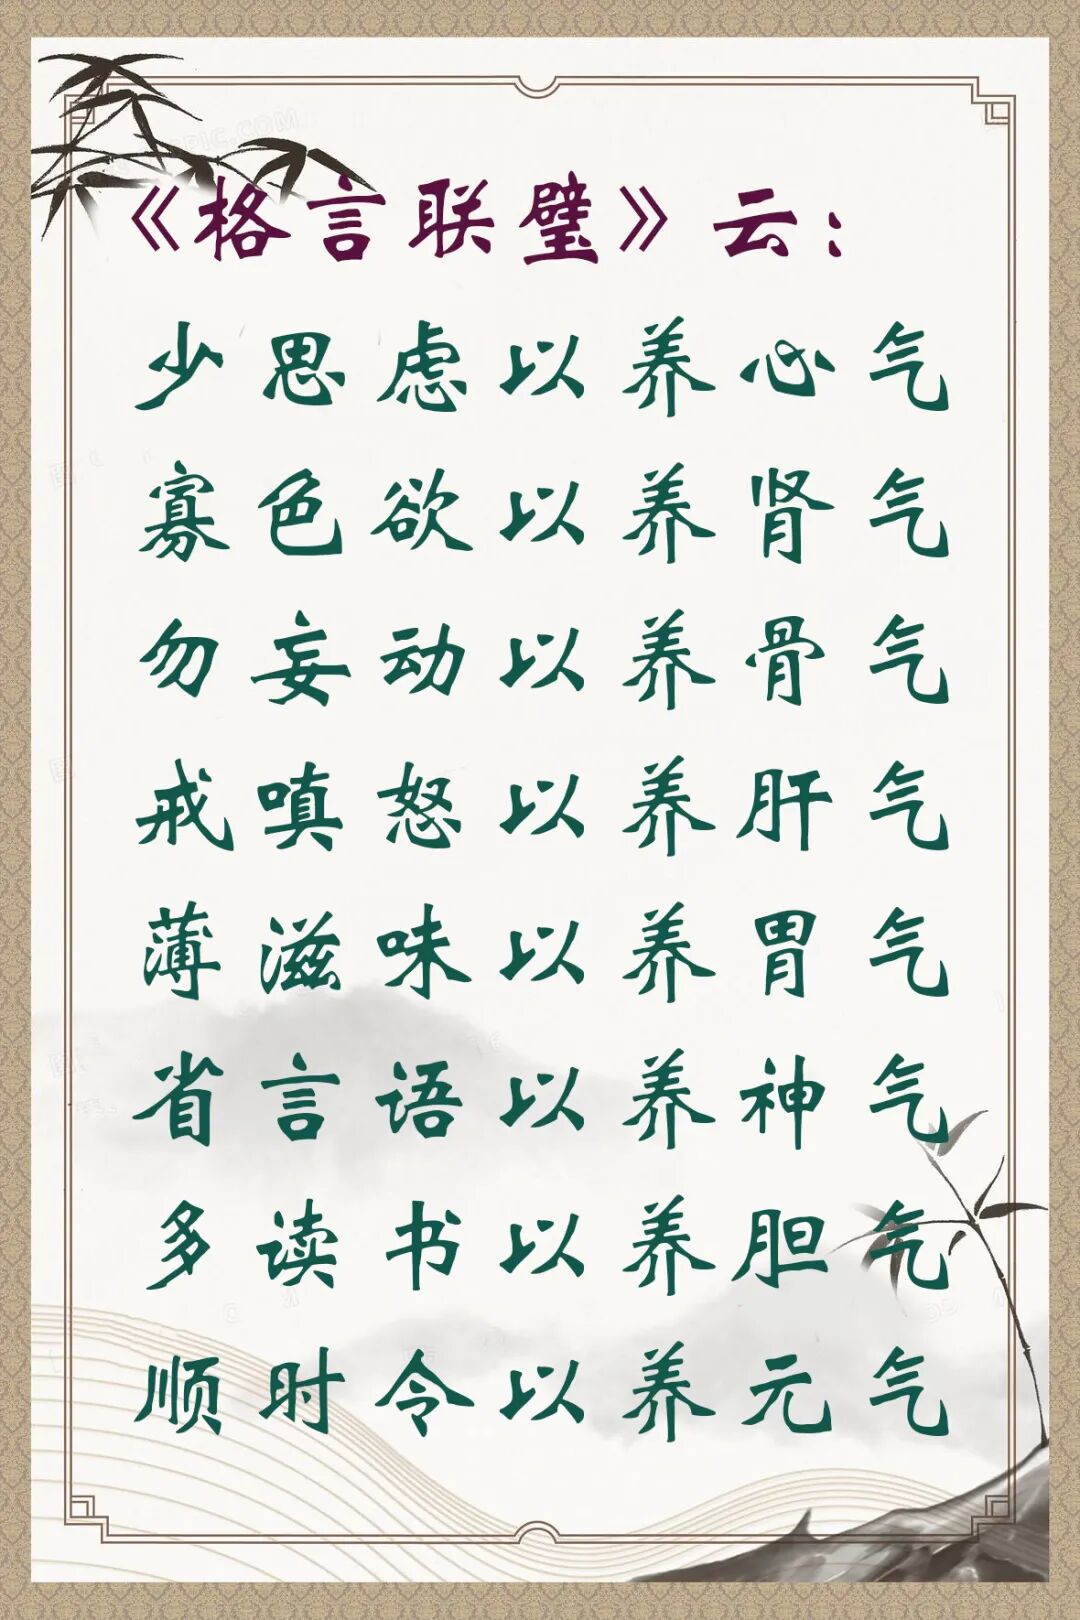 《格言联璧》云：
少思虑以养心气
寡色欲以养肾气
勿妄动以养骨气
戒嗔怒以养肝气
薄滋味以养胃气
省言语以养神气
多读书以养胆气
顺时令以养元气